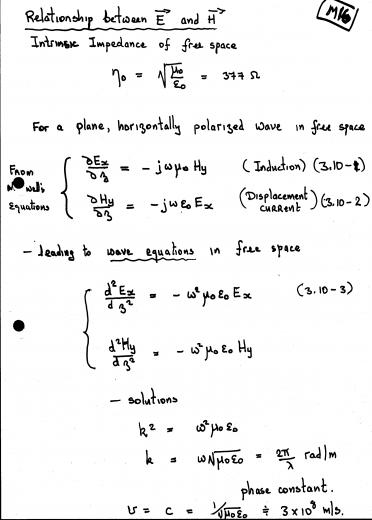 M16
Relationship between E⃗ and H⃗
Intrinsic Impedance of free space
η₀ = √(μ₀/ε₀) = 377 Ω
For a plane, horizontally polarized wave in free space
From
∂Ex/∂z = - jωμ₀ Hy (Induction) (3.10-1)
Equations
∂Hy/∂z = - jωε₀ Ex (Displacement current) (3.10-2)
- leading to wave equations in free space
d²Ex/dz² = - ω²μ₀ε₀ Ex (3.10-3)
d²Hy/dz² = - ω²μ₀ε₀ Hy
- solutions
k² = ω²μ₀ε₀
k = ω√μ₀ε₀ = 2π/λ rad/m
phase constant.
υ = c = 1/√μ₀ε₀ ≑ 3×10⁸ m/s.